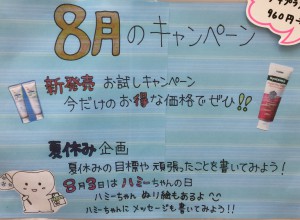 960円
8月のキャンペーン
新発売 お試しキャンペーン
今だけのお得な価格でぜひ!!
夏休み企画
夏休みの目標や頑張ったことを書いてみよう!
8月3日はハミーちゃんの日
ハミーちゃん ぬり絵もあるよ
ハミーちゃんにメッセージも書いてみよう!!